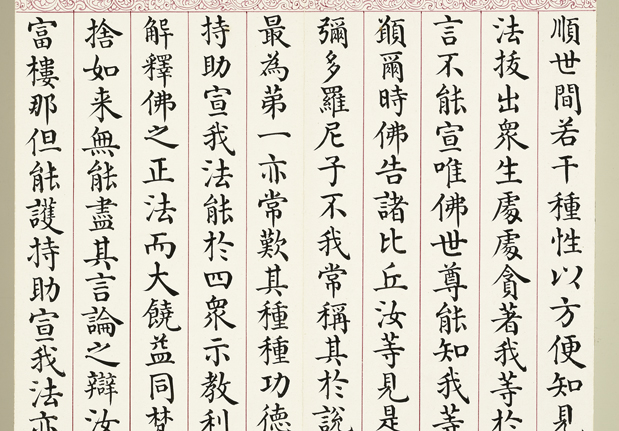 順世間若干種性以方便知見
法拔出衆生處處貪著我等於
言不能宣唯佛世尊能知我等
願爾時佛告諸比丘汝等見是
彌多羅尼子不我常稱其於說
最為苐一亦常歎其種種功德
持助宣我法能於四衆示教利
解釋佛之正法而大饒益同梵
捨如来無能盡其言論之辯汝
富樓那但能護持助宣我法亦